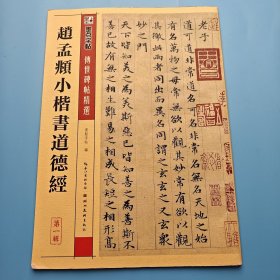 墨点字帖
傳世碑帖精選
趙孟頫小楷書道德經
第一輯
老子
道可道非常道名可名非常名無名天地之始
有名萬物之母常無欲以觀其妙常有欲以觀
其徼此兩者同出而異名同謂之玄玄之又玄衆
妙之門
天下皆知美之為美斯惡已皆知善之為善斯不
善已故有無之相生難易之相成長短之相形高